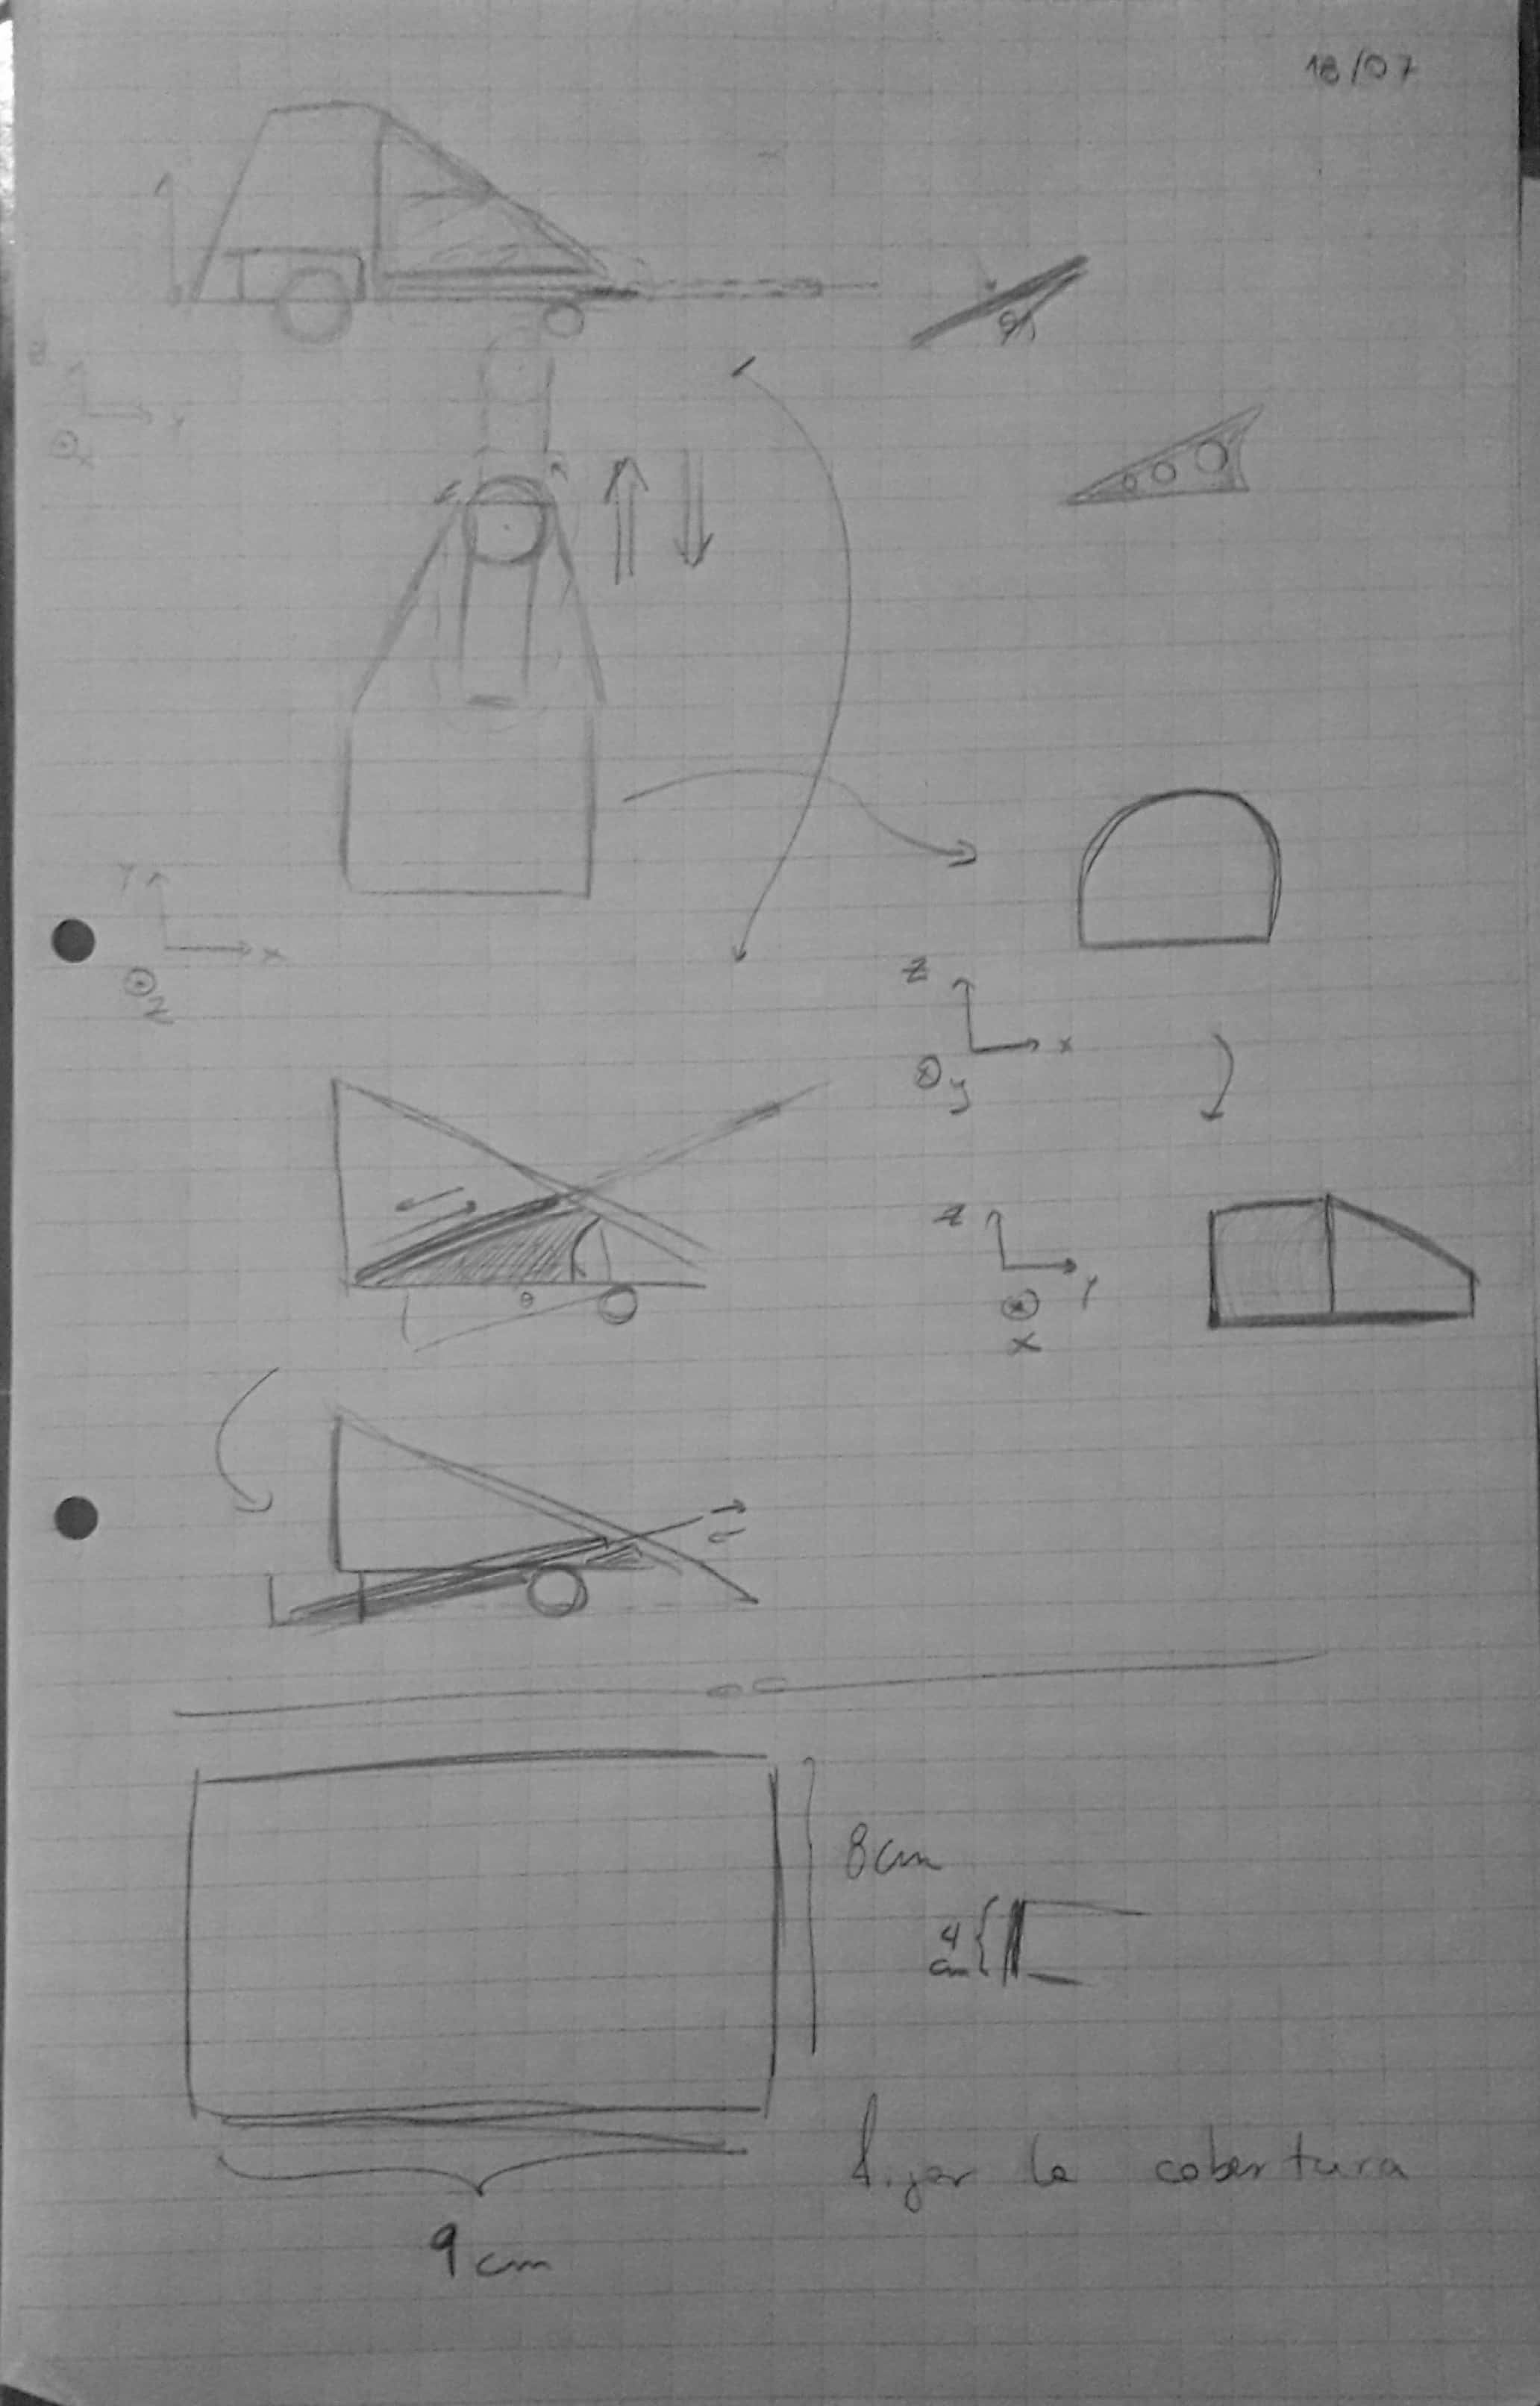 18/07
z
Y
x
Y
x
z
z
x
y
z
y
x
θ
8cm
4
cm
fijar la cobertura
9cm